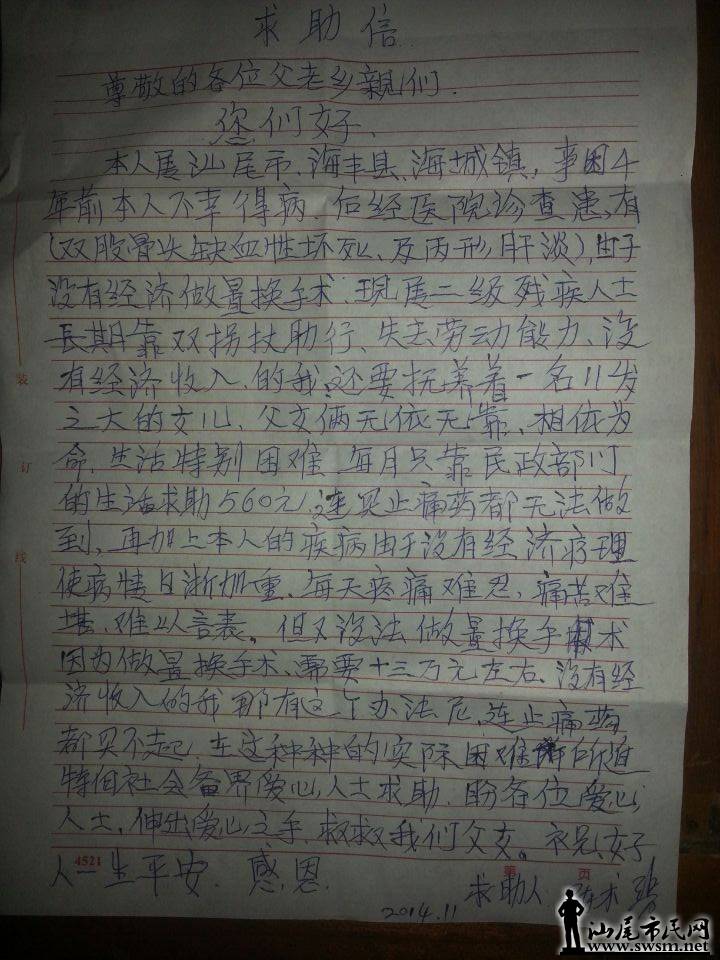 求助信
尊敬的各位父老乡親们.
您们好、
本人属汕尾市、海丰县、海城镇，事因4
年前本人不幸得病.后经医院珍查患,有
(双股骨头缺血性坏死、及丙形肝淡),由于
没有经济做置换手术.现属二级残疾人士
長期靠双拐扙助行、失去劳动能力、没
有经济收入、的我,还要抚养着一名11岁
之大的女儿、父女俩无依无靠、相依为
命、生活特别困难 每月只靠民政部门
的生活求助560元,连买止痛药都无法做
到、再加上本人的疾病由于没有经济疗理
使病情日渐加重、每天疼痛难忍、痛苦难
堪、难以言表。但又没法做置换手术
因为做置换手术、需要十三万元左右、没有经
济收入的我那有这个办法尼,连止痛药
都买不起,在这种种的实际困难 所迫
特伯社会各界爱心人士求助.盼各位爱心
人士,伸出爱心之手、救救我们父女。祝好
人一生平安. 感恩
求助人
2014.11
装
订
线
4521
第 页
汕尾市民网
www.swsm.net